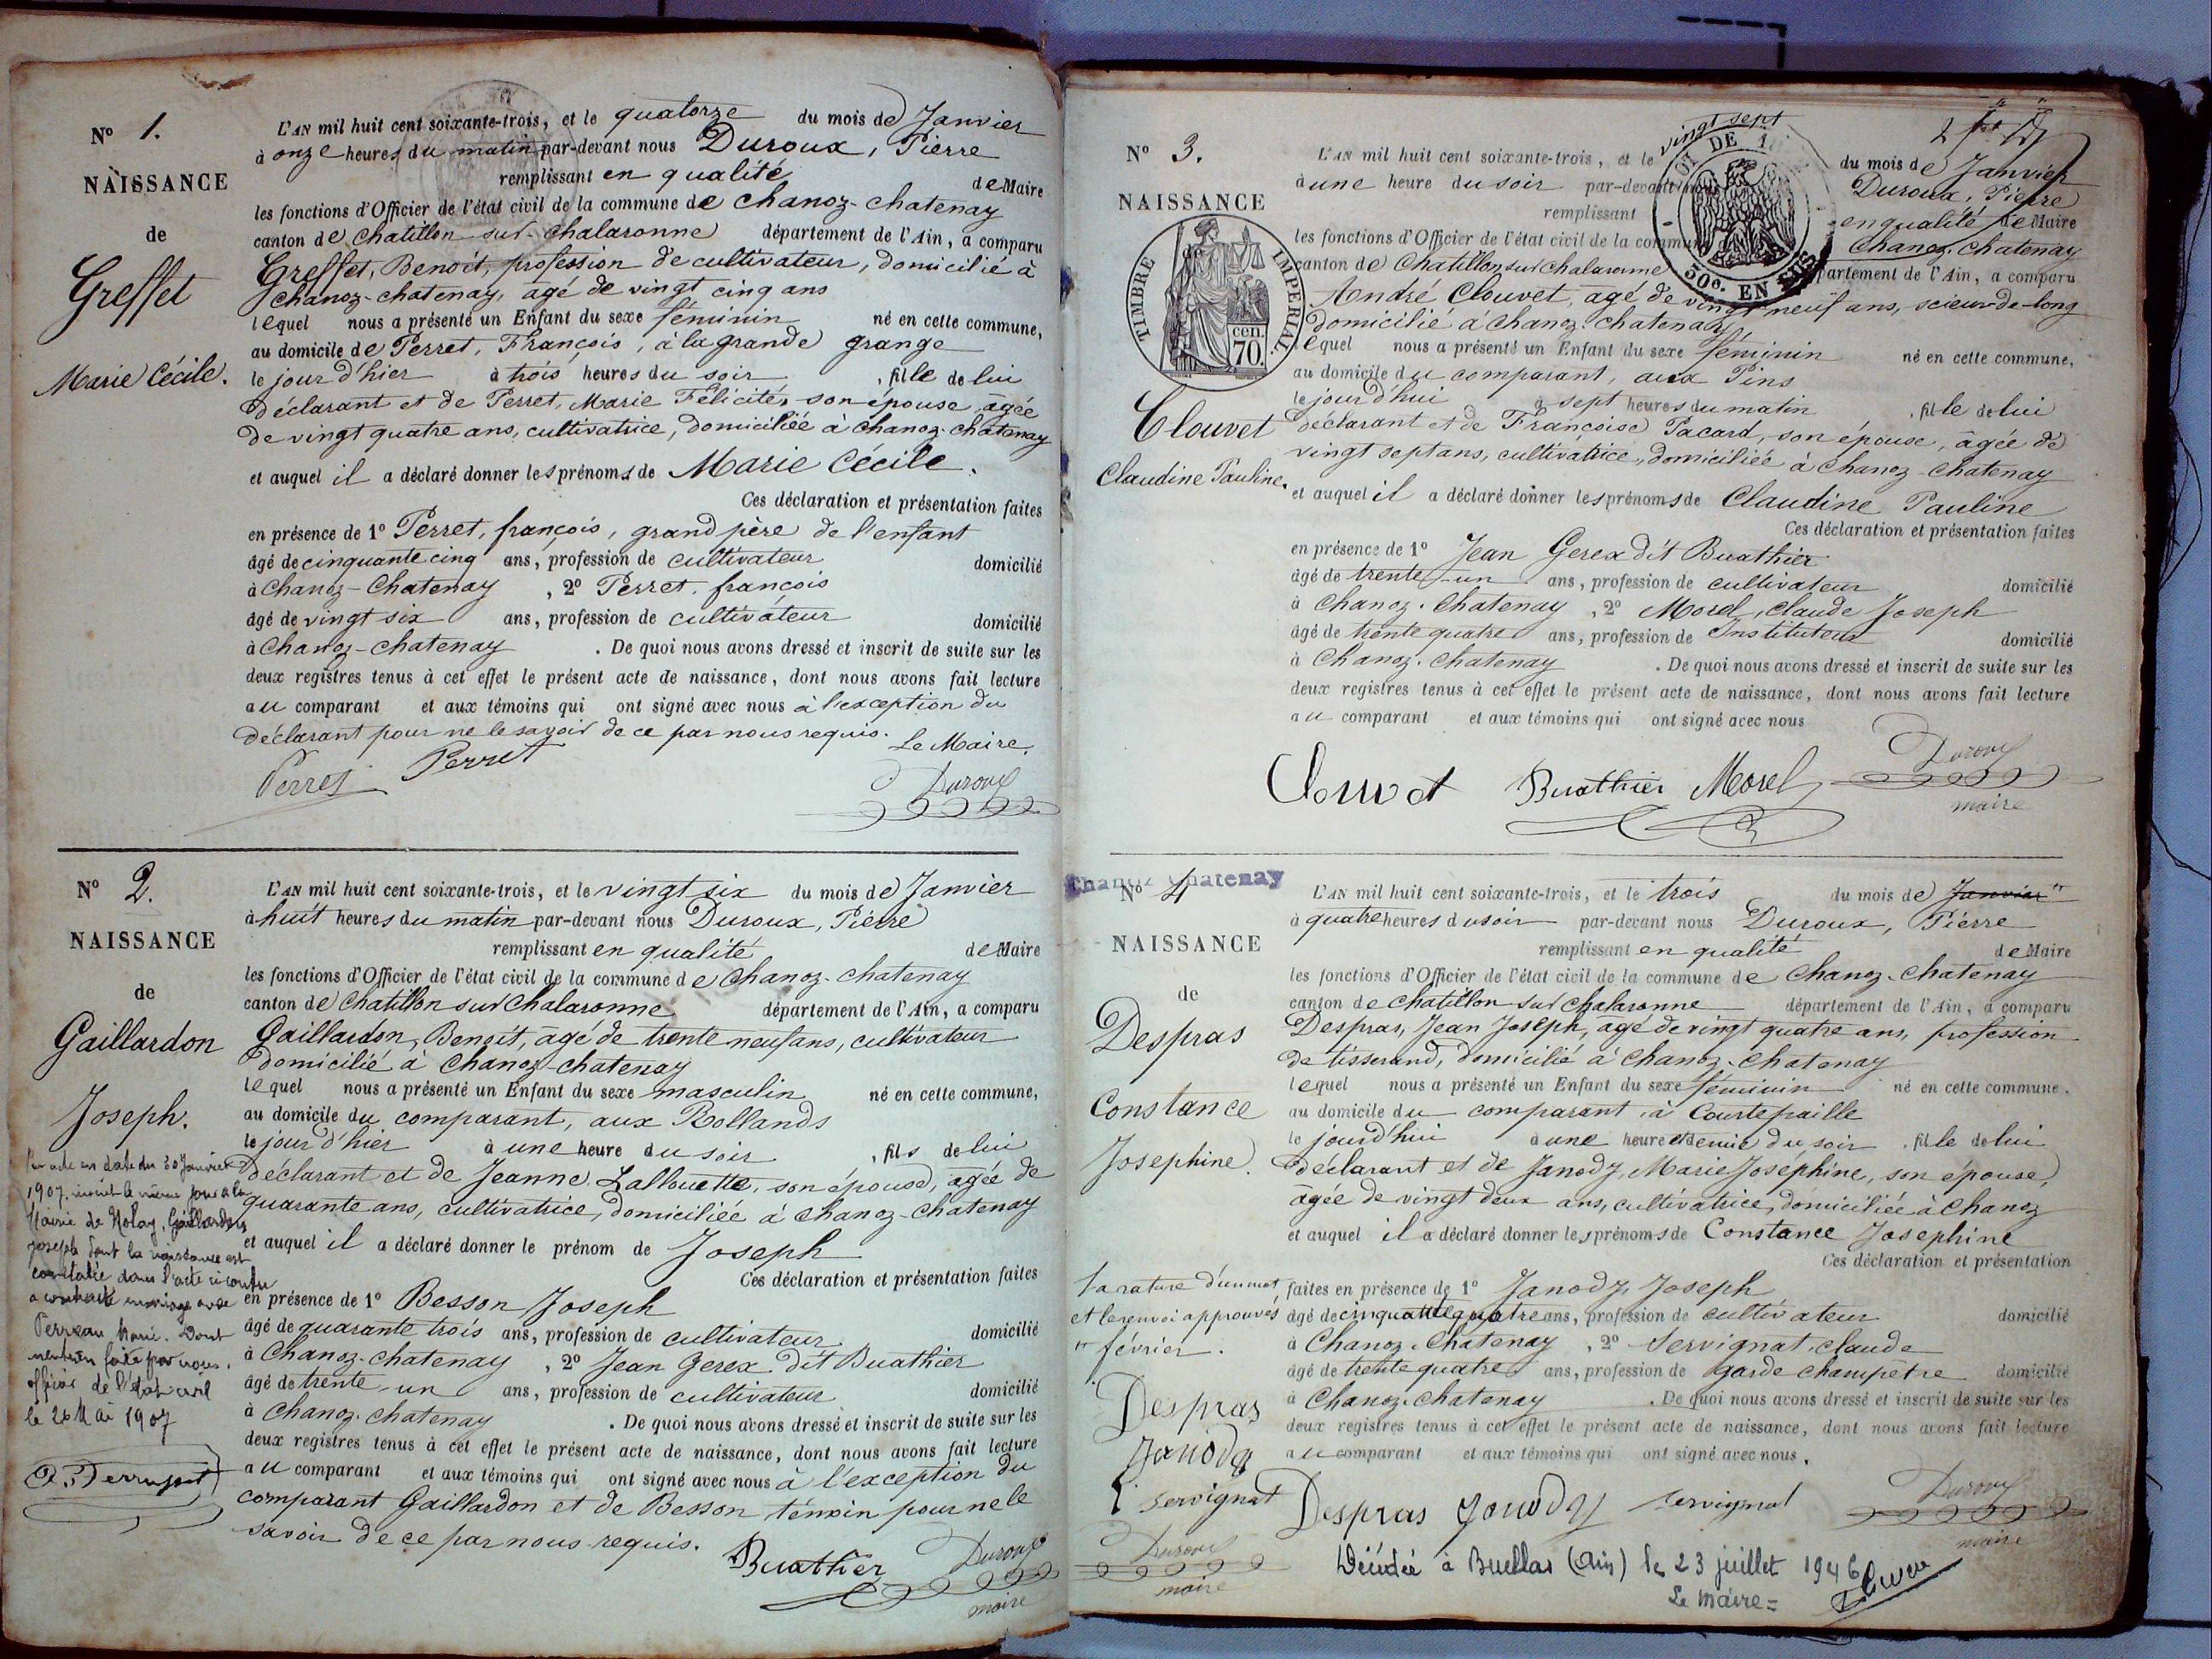 N° 1.
NAISSANCE
de
Greffet
Marie Cécile.
L'AN mil huit cent soixante-trois, et le quatorze du mois de Janvier
à onze heures du matin par-devant nous Duroux, Pierre
remplissant en qualité de Maire
les fonctions d'Officier de l'état civil de la commune de Chanoz-Chatenay
canton de Chatillon sur Chalaronne département de l'Ain, a comparu
Greffet, Benoit, profession de cultivateur, domicilié à
Chanoz-chatenay, âgé de vingt cinq ans
lequel nous a présenté un Enfant du sexe féminin né en cette commune,
au domicile de Perret, François, à la grande grange
le jour d'hier à trois heures du soir, fille de lui
déclarant et de Perret, Marie Félicité, son épouse, âgée
de vingt quatre ans, cultivatrice, domiciliée à Chanoz-chatenay
et auquel il a déclaré donner les prénoms de Marie Cécile.
Ces déclaration et présentation faites
en présence de 1° Perret, françois, grand père de l'enfant
âgé de cinquante cinq ans, profession de cultivateur domicilié
à Chanoz-Chatenay, 2° Perret, françois
âgé de vingt six ans, profession de cultivateur domicilié
à Chanoz-chatenay. De quoi nous avons dressé et inscrit de suite sur les
deux registres tenus à cet effet le présent acte de naissance, dont nous avons fait lecture
au comparant et aux témoins qui ont signé avec nous à l'exception du
déclarant pour ne le savoir de ce par nous requis.
Le Maire,
Perret Perret Duroux
N° 2.
NAISSANCE
de
Gaillardon
Joseph.
L'AN mil huit cent soixante-trois, et le vingt six du mois de Janvier
à huit heures du matin par-devant nous Duroux, Pierre
remplissant en qualité de Maire
les fonctions d'Officier de l'état civil de la commune de Chanoz-chatenay
canton de Chatillon sur Chalaronne département de l'Ain, a comparu
Gaillardon, Benoit, âgé de trente neuf ans, cultivateur
domicilié à Chanoz-chatenay
lequel nous a présenté un Enfant du sexe masculin né en cette commune,
au domicile du comparant, aux Rollands
le jour d'hier à une heure du soir, fils de lui
déclarant et de Jeanne Lallouette, son épouse, âgée de
quarante ans, cultivatrice, domiciliée à Chanoz-Chatenay
et auquel il a déclaré donner le prénom de Joseph
Ces déclaration et présentation faites
en présence de 1° Besson Joseph
âgé de quarante trois ans, profession de cultivateur domicilié
à Chanoz-chatenay, 2° Jean Gerex dit Buathier
âgé de trente-un ans, profession de cultivateur domicilié
à Chanoz-chatenay. De quoi nous avons dressé et inscrit de suite sur les
deux registres tenus à cet effet le présent acte de naissance, dont nous avons fait lecture
au comparant et aux témoins qui ont signé avec nous à l'exception du
comparant Gaillardon et de Besson témoin pour ne le
savoir de ce par nous requis.
Buathier Duroux
maire
Par acte en date du 30 Janvier
1907, inscrit le même jour à la
Mairie de Nolay, Gaillardon
Joseph dont la naissance est
constatée dans l'acte ci contre
a contracté mariage avec
Perreau Marie. Dont
mention faite par nous,
officier de l'état civil
le 26 Mai 1907
N° 3.
NAISSANCE
de
TIMBRE IMPERIAL
70 cen.
Clouvet
Claudine Pauline.
L'AN mil huit cent soixante-trois, et le vingt sept du mois de Janvier
à une heure du soir par-devant nous Duroux, Pierre
remplissant en qualité de Maire
les fonctions d'Officier de l'état civil de la commune Chanoz-Chatenay
canton de Chatillon sur Chalaronne département de l'Ain, a comparu
50c. EN SUS
André Clouvet, âgé de vingt neuf ans, scieur-de-long
domicilié à Chanoz-chatenay,
lequel nous a présenté un Enfant du sexe féminin né en cette commune,
au domicile du comparant, aux Pins
le jourd'hui à sept heures du matin, fille de lui
déclarant et de Françoise Pacard, son épouse, âgée de
vingt sept ans, cultivatrice, domiciliée à Chanoz-Chatenay
et auquel il a déclaré donner les prénoms de Claudine Pauline
Ces déclaration et présentation faites
en présence de 1° Jean Gerex dit Buathier
âgé de trente-un ans, profession de cultivateur domicilié
à Chanoz-Chatenay, 2° Morel, Claude Joseph
âgé de trente quatre ans, profession de Instituteur domicilié
à Chanoz-Chatenay. De quoi nous avons dressé et inscrit de suite sur les
deux registres tenus à cet effet le présent acte de naissance, dont nous avons fait lecture
au comparant et aux témoins qui ont signé avec nous
Clouvet Buathier Morel Duroux
maire
Chanoz Chatenay
N° 4
NAISSANCE
de
Despras
Constance
Josephine.
L'AN mil huit cent soixante-trois, et le trois du mois de Janvier "
à quatre heures du soir par-devant nous Duroux, Pierre
remplissant en qualité de Maire
les fonctions d'Officier de l'état civil de la commune de Chanoz-Chatenay
canton de Chatillon sur Chalaronne département de l'Ain, a comparu
Despras, Jean Joseph, âgé de vingt quatre ans, profession
de tisserand, domicilié à Chanoz-Chatenay
lequel nous a présenté un Enfant du sexe féminin né en cette commune.
au domicile du comparant, à Courtepaille
le jourd'hui à une heure et demie du soir, fille de lui
déclarant et de Janody, Marie Joséphine, son épouse,
âgée de vingt deux ans, cultivatrice, domiciliée à Chanoz
et auquel il a déclaré donner les prénoms de Constance Josephine
Ces déclaration et présentation
faites en présence de 1° Janody, Joseph
âgé de cinquante quatre ans, profession de cultivateur domicilié
à Chanoz-Chatenay, 2° Servignat, Claude
âgé de trente quatre ans, profession de garde champêtre domicilié
à Chanoz-chatenay. De quoi nous avons dressé et inscrit de suite sur les
deux registres tenus à cet effet le présent acte de naissance, dont nous avons fait lecture
au comparant et aux témoins qui ont signé avec nous.
Despras Janody Servignat Duroux
maire
La rature d'un mot
et le renvoi approuvés
" février.
Despras
Janody
Servignat
Duroux
maire
Décédée à Buellas (Ain) le 23 juillet 1946
Le Maire =